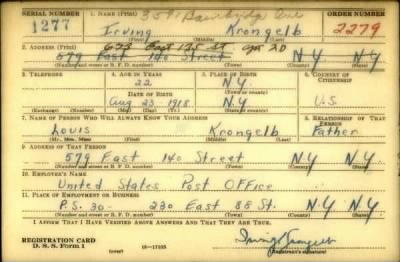 SERIAL NUMBER 1. NAME (Print) 3591 Bainbridge Ave ORDER NUMBER
1277 Irving Krongelb 2279
(First) (Middle) (Last)
2. ADDRESS (Print) 673 East 135 St Apt 2D
579 East 140 Street N.Y N.Y
(Number and street or R. F. D. number) (Town) (County) (State)
3. TELEPHONE 4. AGE IN YEARS 5. PLACE OF BIRTH 6. COUNTRY OF CITIZENSHIP
22 N.Y
(Town or county)
DATE OF BIRTH
Aug 23 1918 N.Y U.S.
(Exchange) (Number) (Mo.) (Day) (Yr.) (State or country)
7. NAME OF PERSON WHO WILL ALWAYS KNOW YOUR ADDRESS 8. RELATIONSHIP OF THAT PERSON
Louis Krongelb Father
(Mr., Mrs., Miss) (First) (Middle) (Last)
9. ADDRESS OF THAT PERSON
579 East 140 Street N.Y N.Y
(Number and street or R. F. D. number) (Town) (County) (State)
10. EMPLOYER'S NAME
United States Post Office
11. PLACE OF EMPLOYMENT OR BUSINESS
P.S. 30- 230 East 88 St. N.Y N.Y
(Number and street or R. F. D. number) (Town) (County) (State)
I AFFIRM THAT I HAVE VERIFIED ABOVE ANSWERS AND THAT THEY ARE TRUE.
REGISTRATION CARD
D. S. S. Form 1 (over) 16—17105 Irving Krongelb
(Registrant's signature)